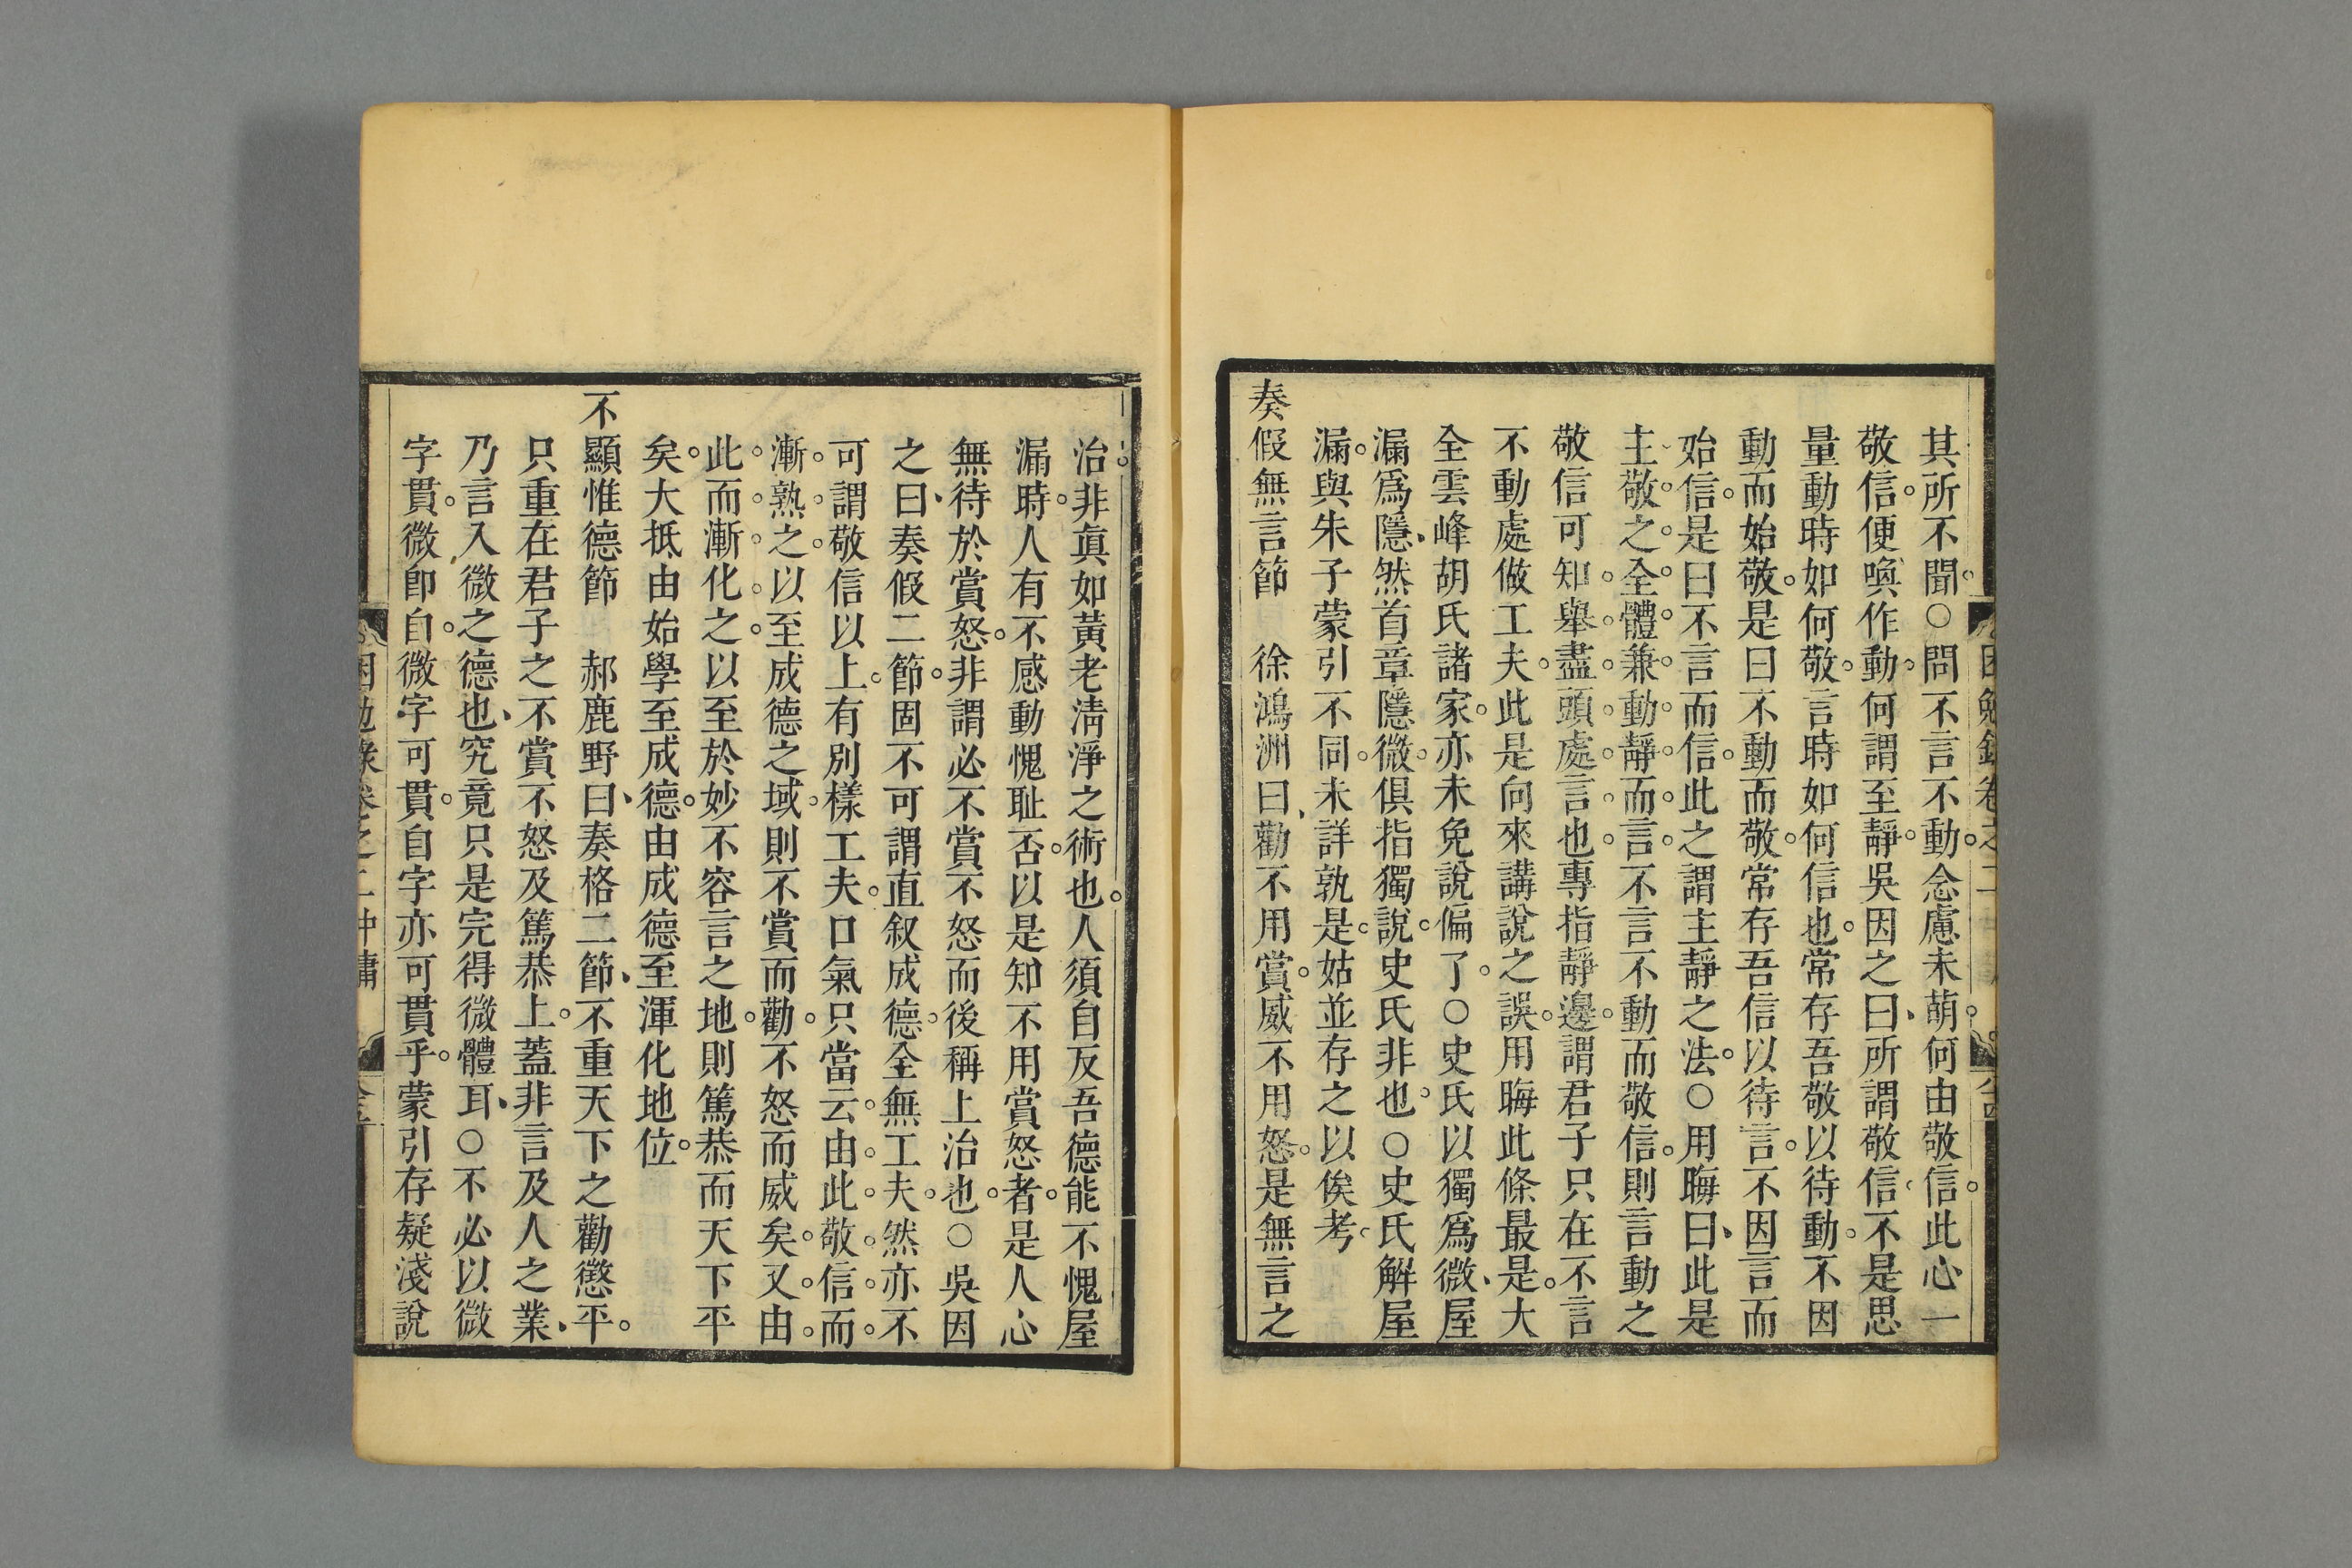 困勉錄卷之二
其所不聞○問不言不動念慮未萌何由敬信此心一
敬信便喚作動何謂至靜吳因之曰所謂敬信不是思
量動時如何敬言時如何信也常存吾敬以待動不因
動而始敬是曰不動而敬常存吾信以待言不因言而
始信是曰不言而信此之謂主靜之法○用晦曰此是
主敬之全體兼動靜而言不言不動而敬信則言動之
敬信可知舉盡頭處言也專指靜邊謂君子只在不言
不動處做工夫此是向來講說之誤用晦此條最是大
全雲峰胡氏諸家亦未免說偏了○史氏以獨爲微屋
漏爲隱然首章隱微俱指獨說史氏非也○史氏解屋
漏與朱子蒙引不同未詳孰是姑並存之以俟考
奏假無言節　徐鴻洲曰勸不用賞威不用怒是無言之
治非眞如黃老淸淨之術也人須自反吾德能不愧屋
漏時人有不感動愧耻否以是知不用賞怒者是人心
無待於賞怒非謂必不賞不怒而後稱上治也○吳因
之曰奏假二節固不可謂直叙成德全無工夫然亦不
可謂敬信以上有別樣工夫口氣只當云由此敬信而
漸熟之以至成德之域則不賞而勸不怒而威矣又由
此而漸化之以至於妙不容言之地則篤恭而天下平
矣大抵由始學至成德由成德至渾化地位
不顯惟德節　郝鹿野曰奏格二節不重天下之勸懲平
只重在君子之不賞不怒及篤恭上蓋非言及人之業
乃言入微之德也究竟只是完得微體耳○不必以微
字貫微卽自微字可貫自字亦可貫乎蒙引存疑淺說
困勉錄卷之二中庸